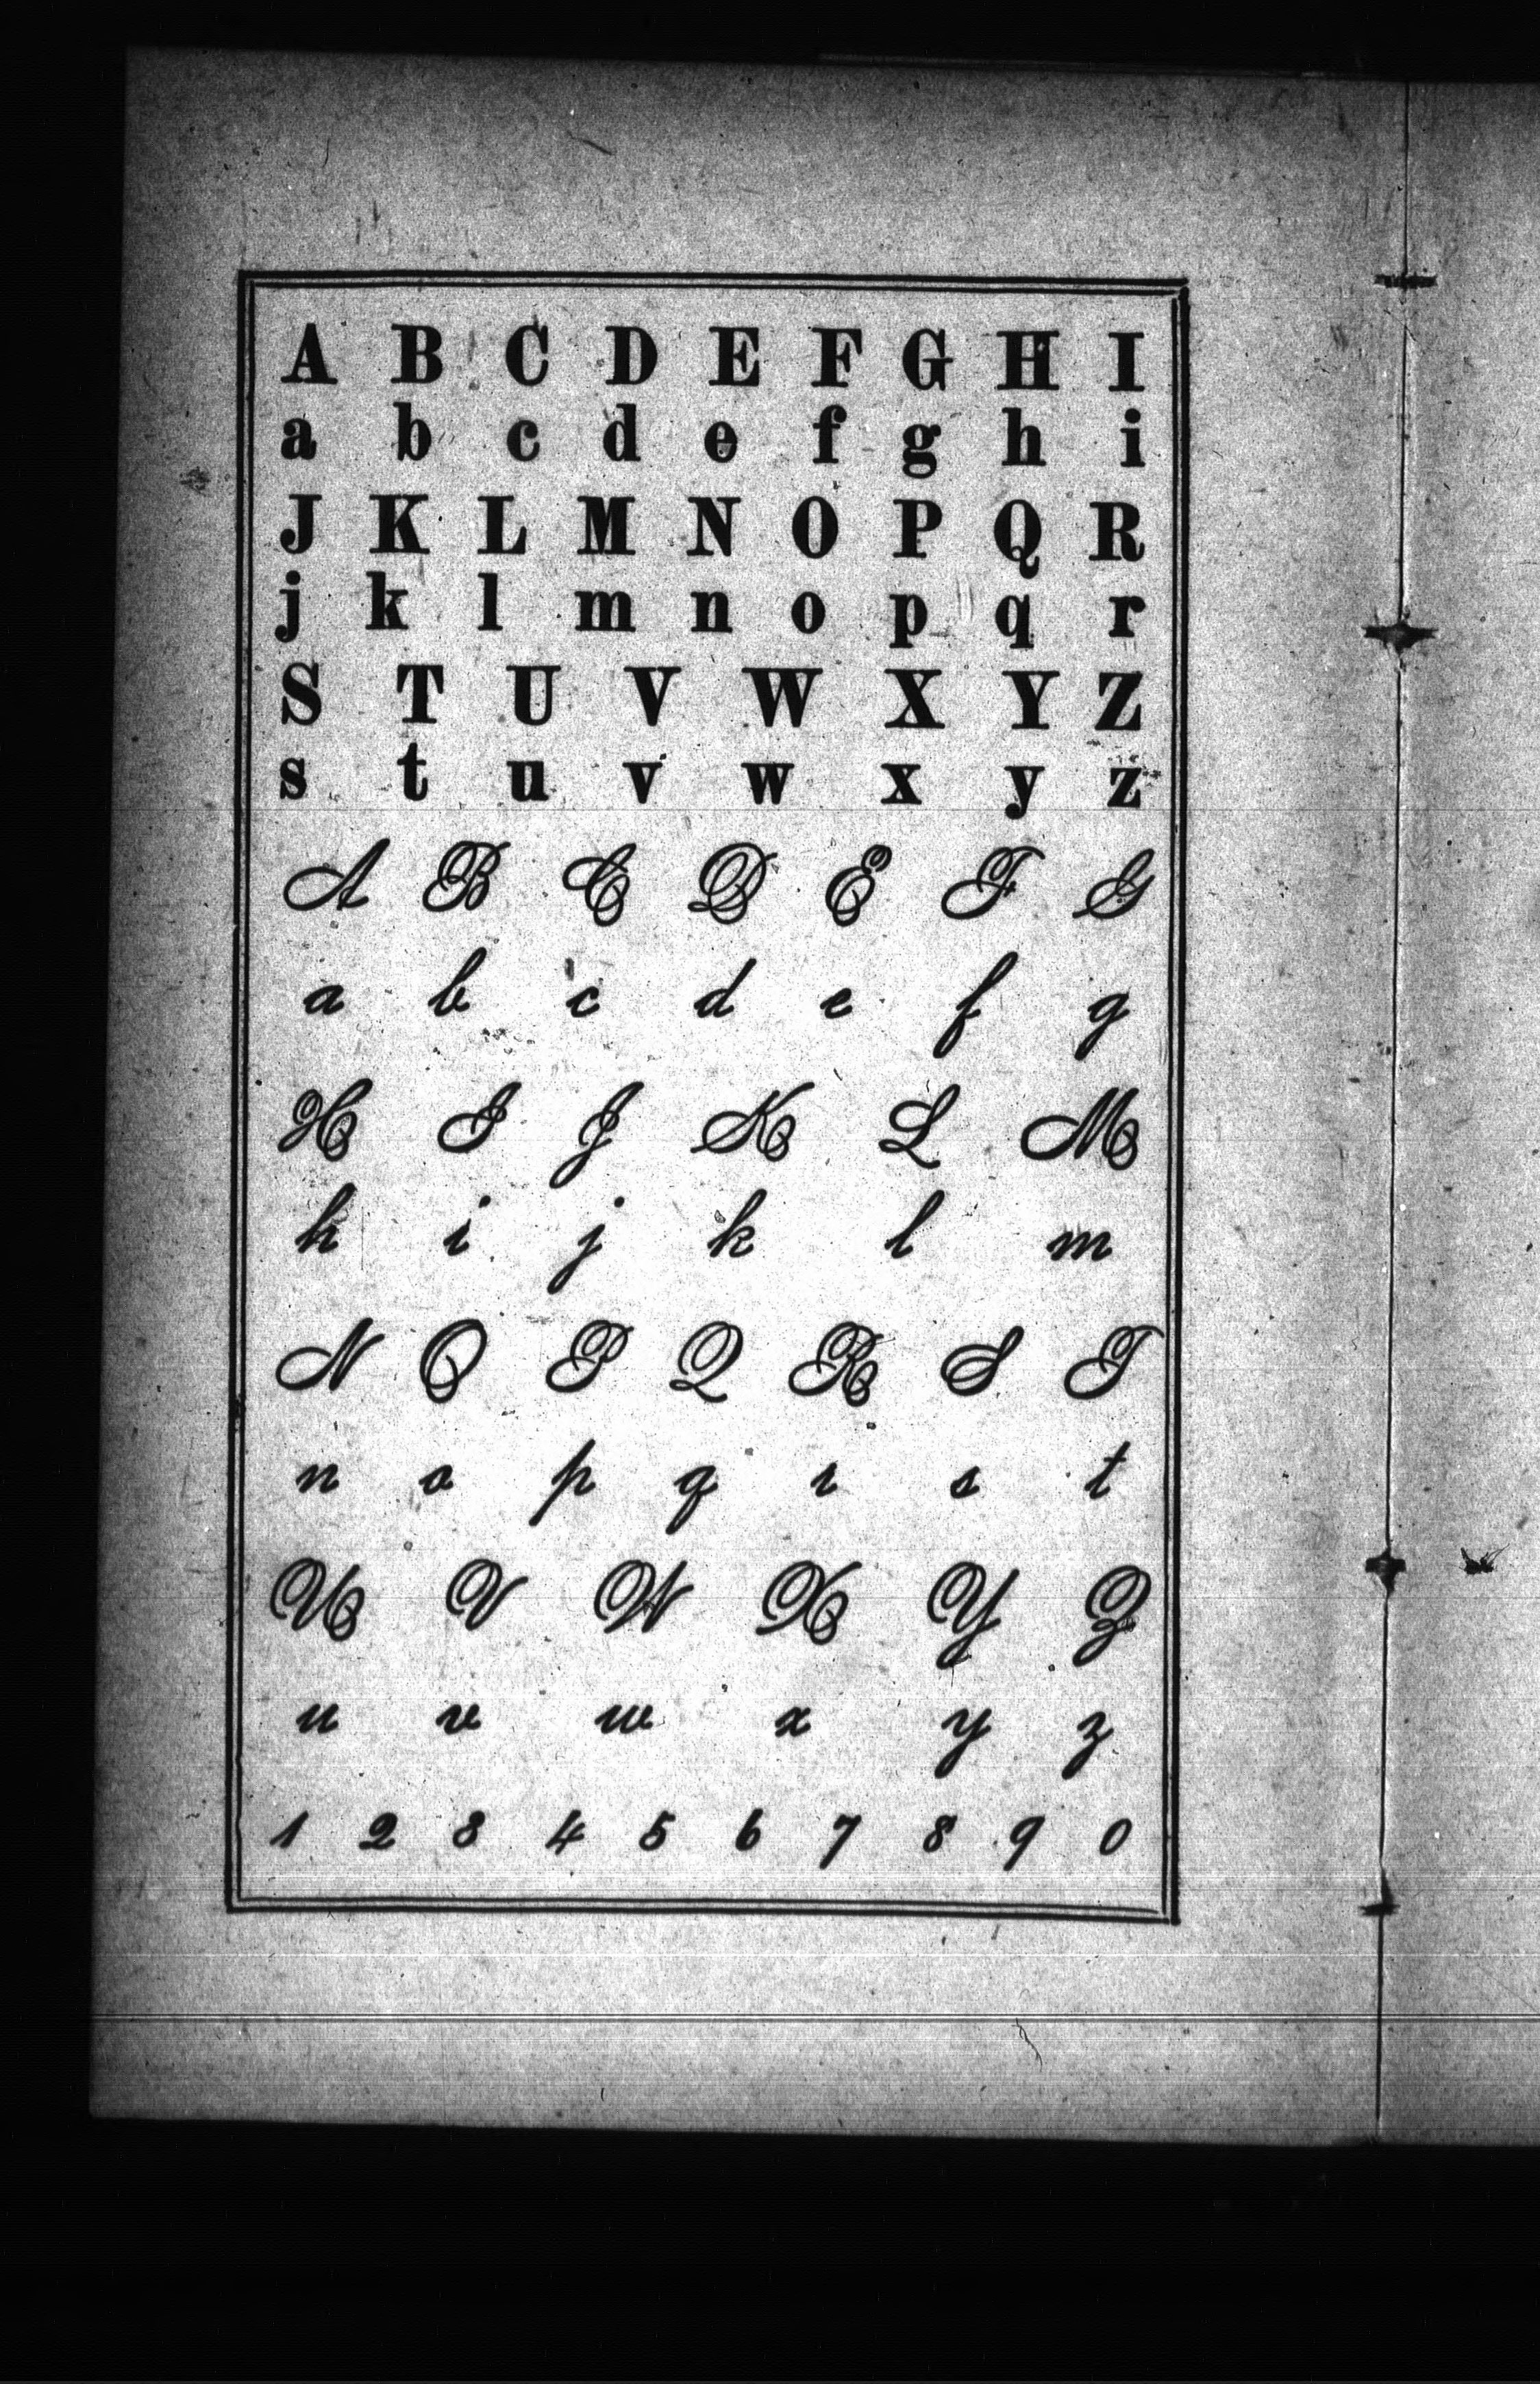 A B C D E F G H I
a b c d e f g h i
J K L M N O P Q R
j k l m n o p q r
S T U V W X Y Z
s t u v w x y z
A B C D E F G
a b c d e f g
H I J K L M
h i j k l m
N O P Q R S T
n o p q r s t
U V W X Y Z
u v w x y z
1 2 3 4 5 6 7 8 9 0